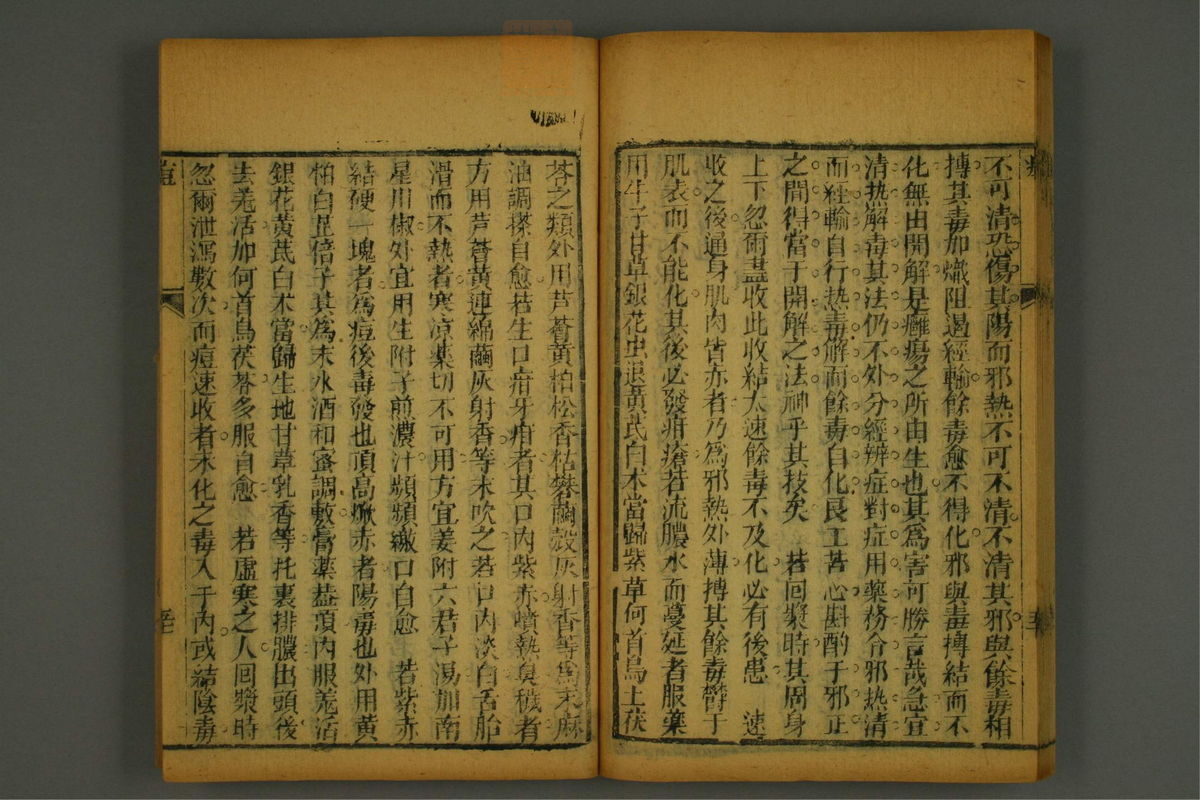 不可清恐傷其陽而邪熱不可不清不清其邪與餘毒相
摶其毒加熾阻遏經輸餘毒愈不得化邪與毒摶結而不
化無由開解是癰瘍之所由生也其為害可勝言哉急宜
清热解毒其法仍不外分經辨症對症用藥務令邪热清
而經輸自行热毒解而餘毒自化良工苦心斟酌于邪正
之間得當于開解之法神乎其技矣 若回漿時其周身
上下忽爾盡收此收結太速餘毒不及化必有後患 速
收之後逼身肌肉皆赤者乃為邪熱外薄摶其餘毒欝于
肌表而不能化其後必發疳瘡若流膿水而蔓延者服藥
用牛子甘草銀花虫退黄芪白术當歸紫草何首烏土茯
苓之類外用芦薈黄柏松香枯礬繭殼灰射香等為末麻
油調搽自愈若生口疳牙疳者其口内紫赤噴熱臭穢者
方用芦薈黄連綿繭灰射香等末吹之若口内淡白舌胎
滑而不熱者寒凉藥切不可用方宜姜附六君子湯加南
星川椒外宜用生附子煎濃汁頻頻繳口自愈 若紫赤
結硬一塊者為痘後毒發也頂高焮赤者陽毒也外用黄
柏白芷倍子共為末水酒和蜜調敷膏藥葢頂内服羌活
銀花黄芪白术當歸生地甘草乳香等托裏排膿出頭後
去羌活加何首烏茯苓多服自愈 若虛寒之人回漿時
忽爾泄瀉數次而痘速收者未化之毒入于内或結陰毒